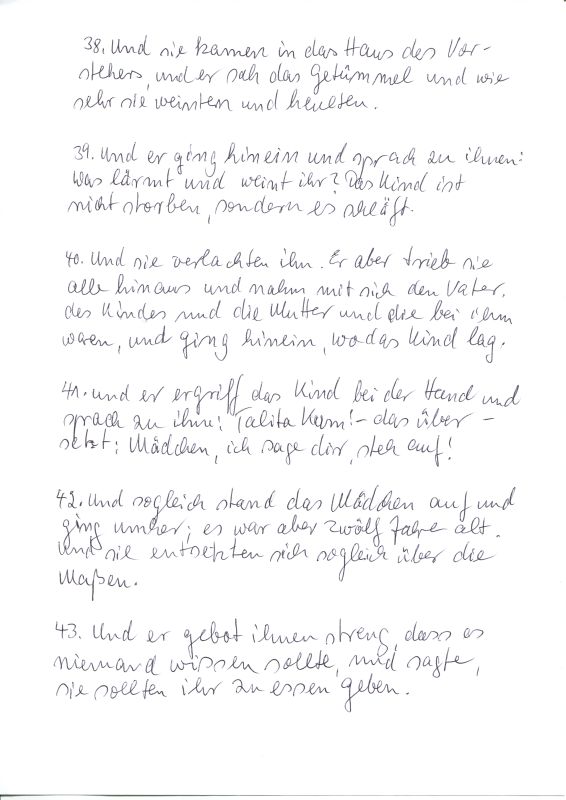 38. Und sie kamen in das Haus des Vor-
stehers, und er sah das Getümmel und wie
sehr sie weinten und heulten.
39. Und er ging hinein und sprach zu ihnen:
Was lärmt und weint ihr? Das Kind ist
nicht storben, sondern es schläft.
40. Und sie verlachten ihn. Er aber trieb sie
alle hinaus und nahm mit sich den Vater.
des Kindes und die Mutter und die bei ihm
waren, und ging hinein, wo das Kind lag.
41. und er ergriff das Kind bei der Hand und
sprach zu ihm: Talita Kum! - das über -
setzt: Mädchen, ich sage dir, steh auf!
42. Und sogleich stand das Mädchen auf und
ging umher; es war aber zwölf Jahre alt.
Und sie entsetzten sich sogleich über die
Maßen.
43. Und er gebot ihnen streng, dass es
niemand wissen sollte, und sagte,
sie sollten ihr zu essen geben.